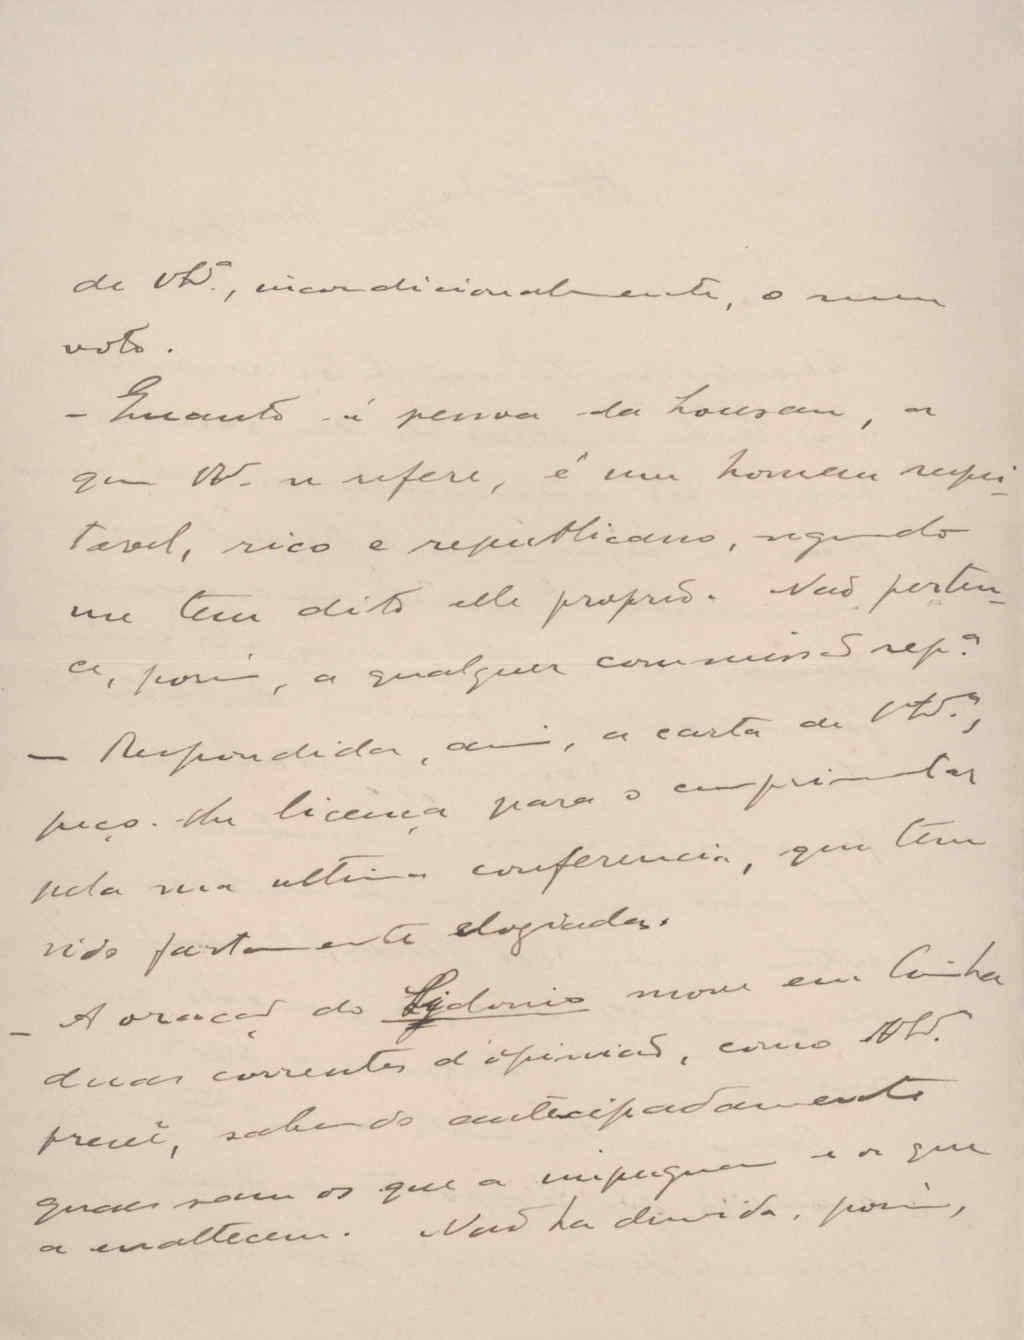 de V. Ex.ª, incondicionalmente, o meu
voto.
– Quanto á pessoa da Lousan, a
que V. Ex. se refere, é um homem respei-
tavel, rico e republicano, segundo
me tem dito elle proprio. Naõ perten-
ce, porem, a qualquer commissaõ rep.ª
– Respondida, assim, a carta de V. Ex.ª,
peço-lhe licença para o cumprimentar
pela sua ultima conferencia, que tem
sido fartamente elogiada.
– A oraçaõ do Sidonio move em Coimbra
duas correntes d'opiniaõ, como V. Ex.ª
prevê, sabendo antecipadamente
quaes sam os que a impugnam e os que
a enaltecem. Naõ ha duvida, porem,